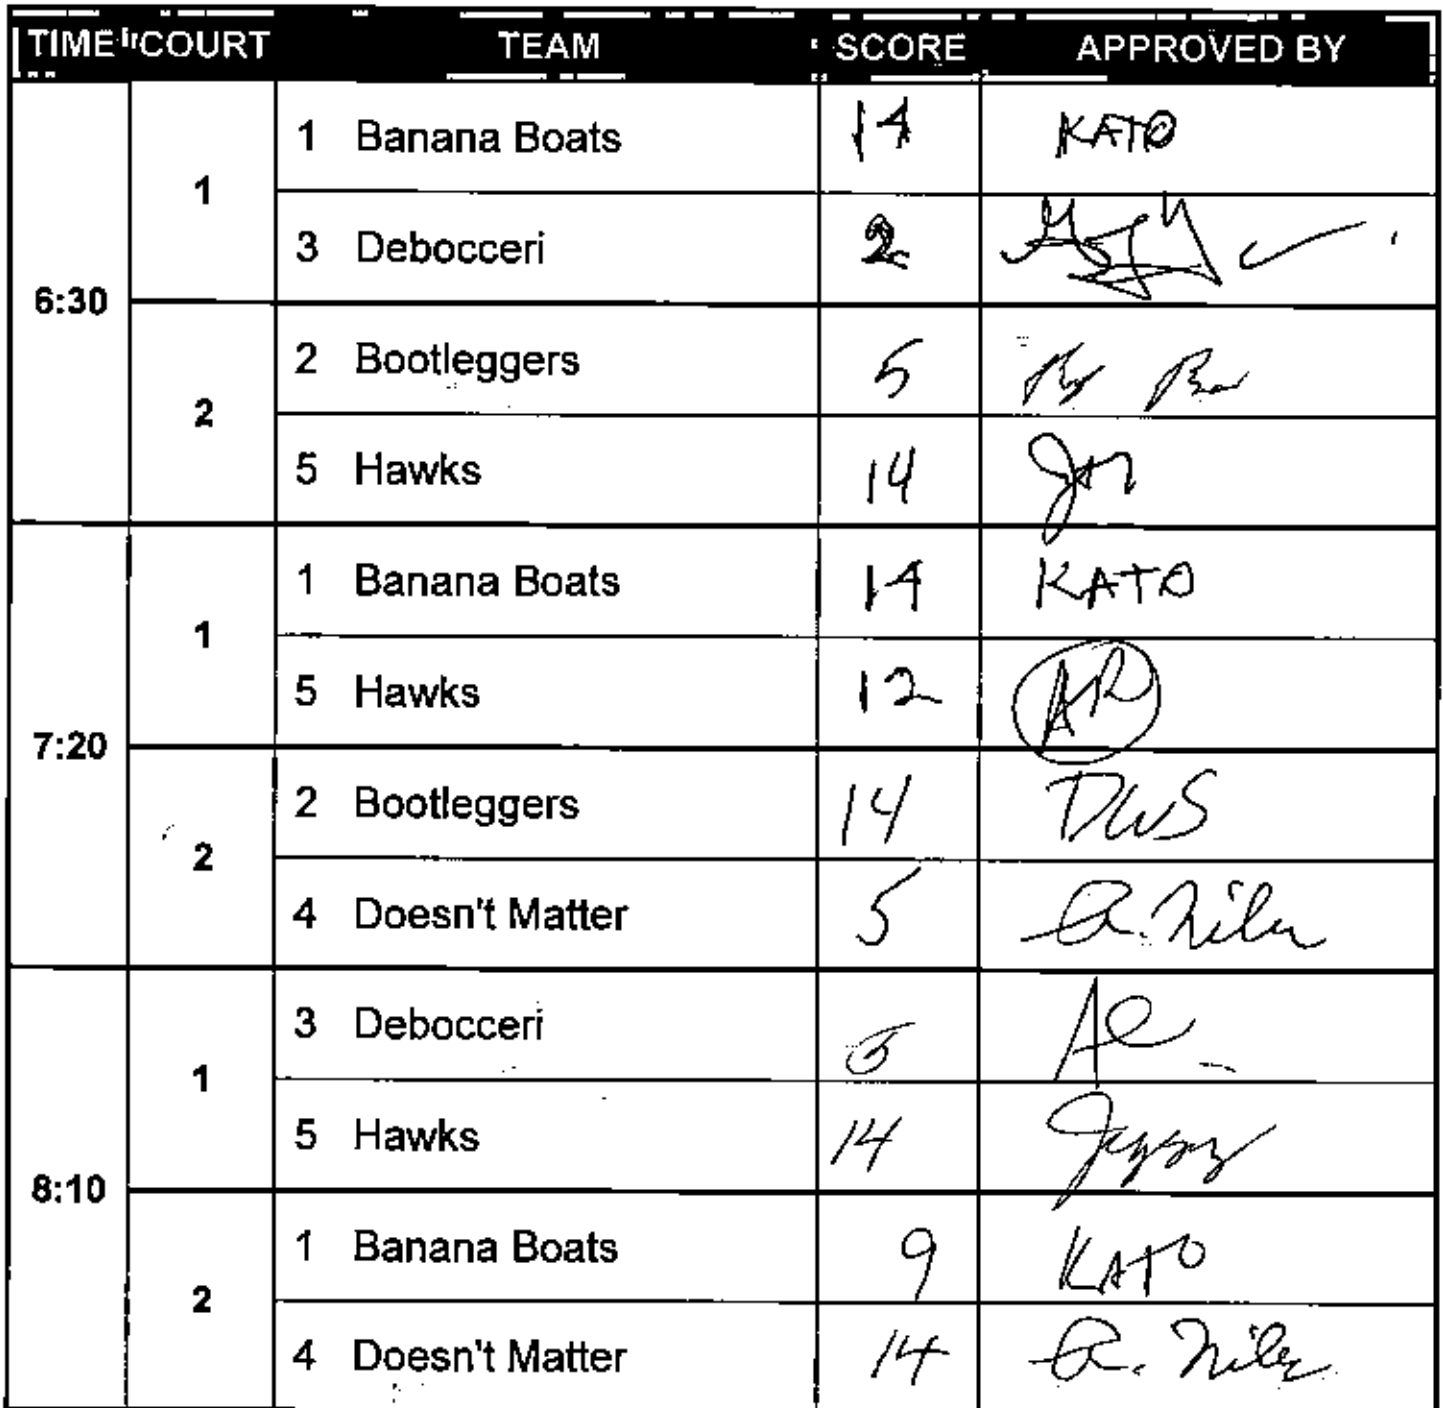 TIME COURT TEAM SCORE APPROVED BY
6:30
1
1 Banana Boats 14 KATO
3 Debocceri 2
2
2 Bootleggers 5
5 Hawks 14
7:20
1
1 Banana Boats 14 KATO
5 Hawks 12 AR
2
2 Bootleggers 14 DWS
4 Doesn't Matter 5
8:10
1
3 Debocceri
5 Hawks 14
2
1 Banana Boats 9 KATO
4 Doesn't Matter 14